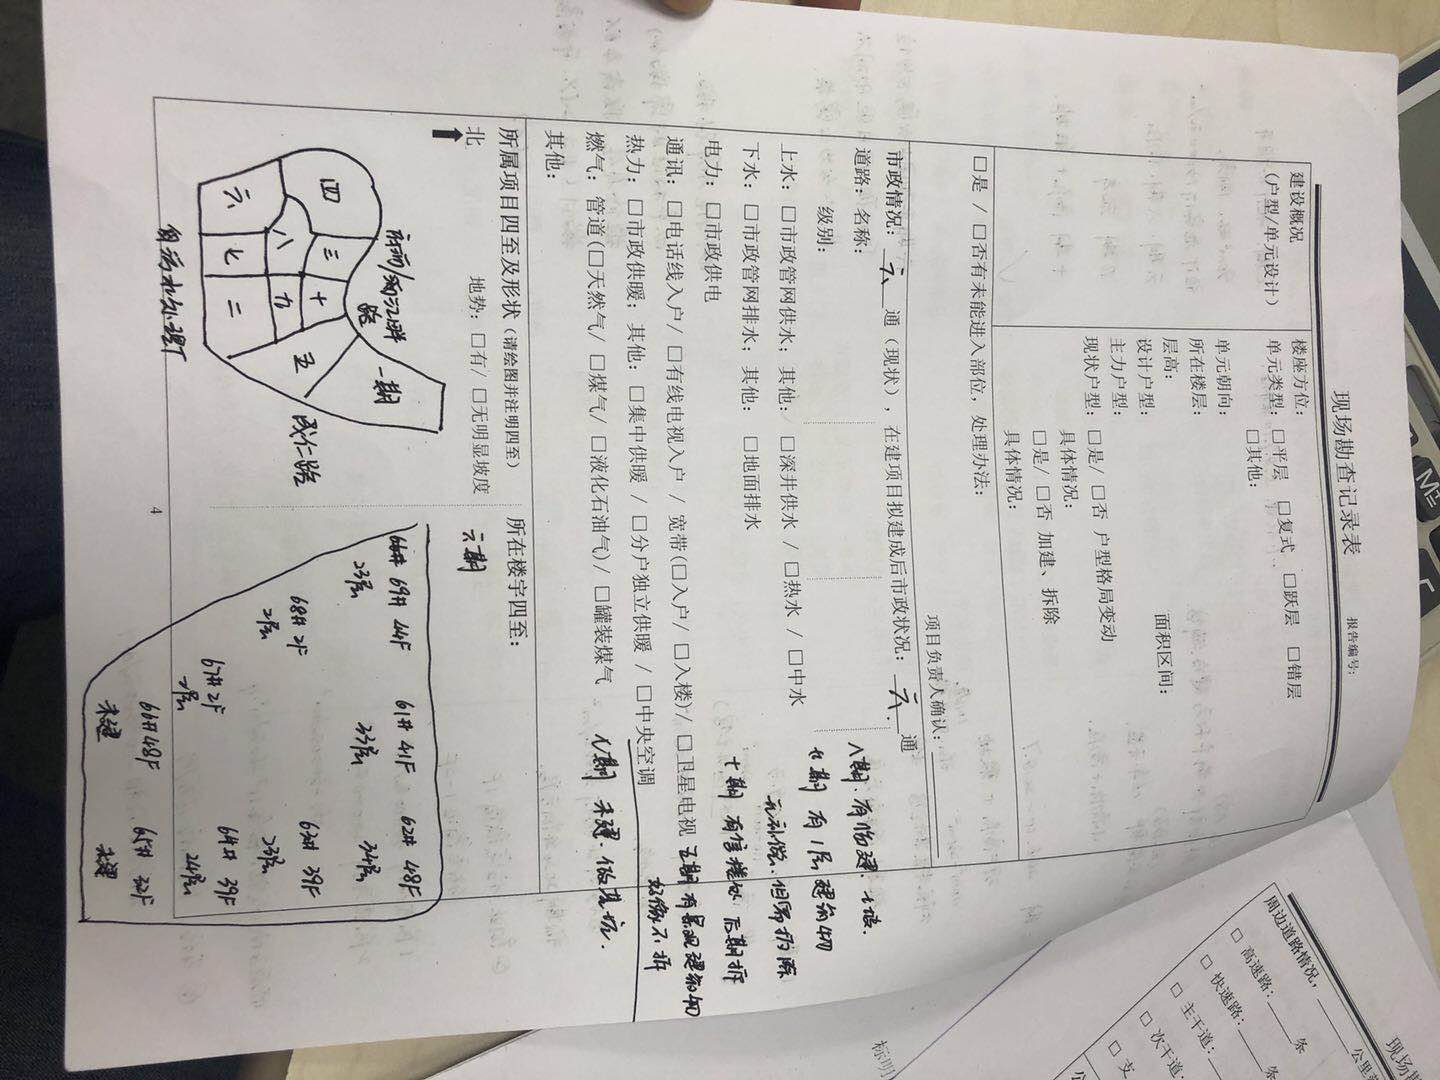 现场勘查记录表
报告编号：
建设概况
（户型/单元设计）
楼座方位：
单元类型：□平层 □复式 □跃层 □错层
□其他：
单元朝向：
所在楼层：
层高： 面积区间：
设计户型：
主力户型：
现状户型：□是/□否 户型格局变动
具体情况：
□是/□否 加建、拆除
具体情况：
□是/□否有未能进入部位，处理办法：
项目负责人确认：
市政情况：六 通（现状），在建项目拟建成后市政状况：六 通
道路：名称：
级别：
上水：□市政管网供水；其他：□深井供水 / □热水 / □中水
下水：□市政管网排水；其他：□地面排水
电力：□市政供电
通讯：□电话线入户/ □有线电视入户 / 宽带(□入户/ □入楼)/ □卫星电视
热力：□市政供暖；其他：□集中供暖 / □分户独立供暖 / □中央空调
燃气：管道(□天然气/ □煤气/ □液化石油气)/ □罐装煤气
其他：
八期：有临建.
九期 有1层建筑物
十期 有售楼处 后期拆
五期 有景观建筑物
好像不拆
八期 未建.
所属项目四至及形状（请绘图并注明四至）
北
地势：□有/ □无明显坡度
四
三
十
八
九
六
七
二
五
一期
路
成仁路
污水处理厂
所在楼宇四至：
六期
69# 44F
23层
68# 2F
2层
67# 2F
2层
66# 48F
未建
61# 41F
33层
62# 48F
34层
63# 39F
23层
64# 39F
24层
65# 32F
未建
4
现场
周边道路情况，
公里
□ 高速路： 条
□ 快速路： 条
□ 主干道：
□ 次干道：
□ 支
标明